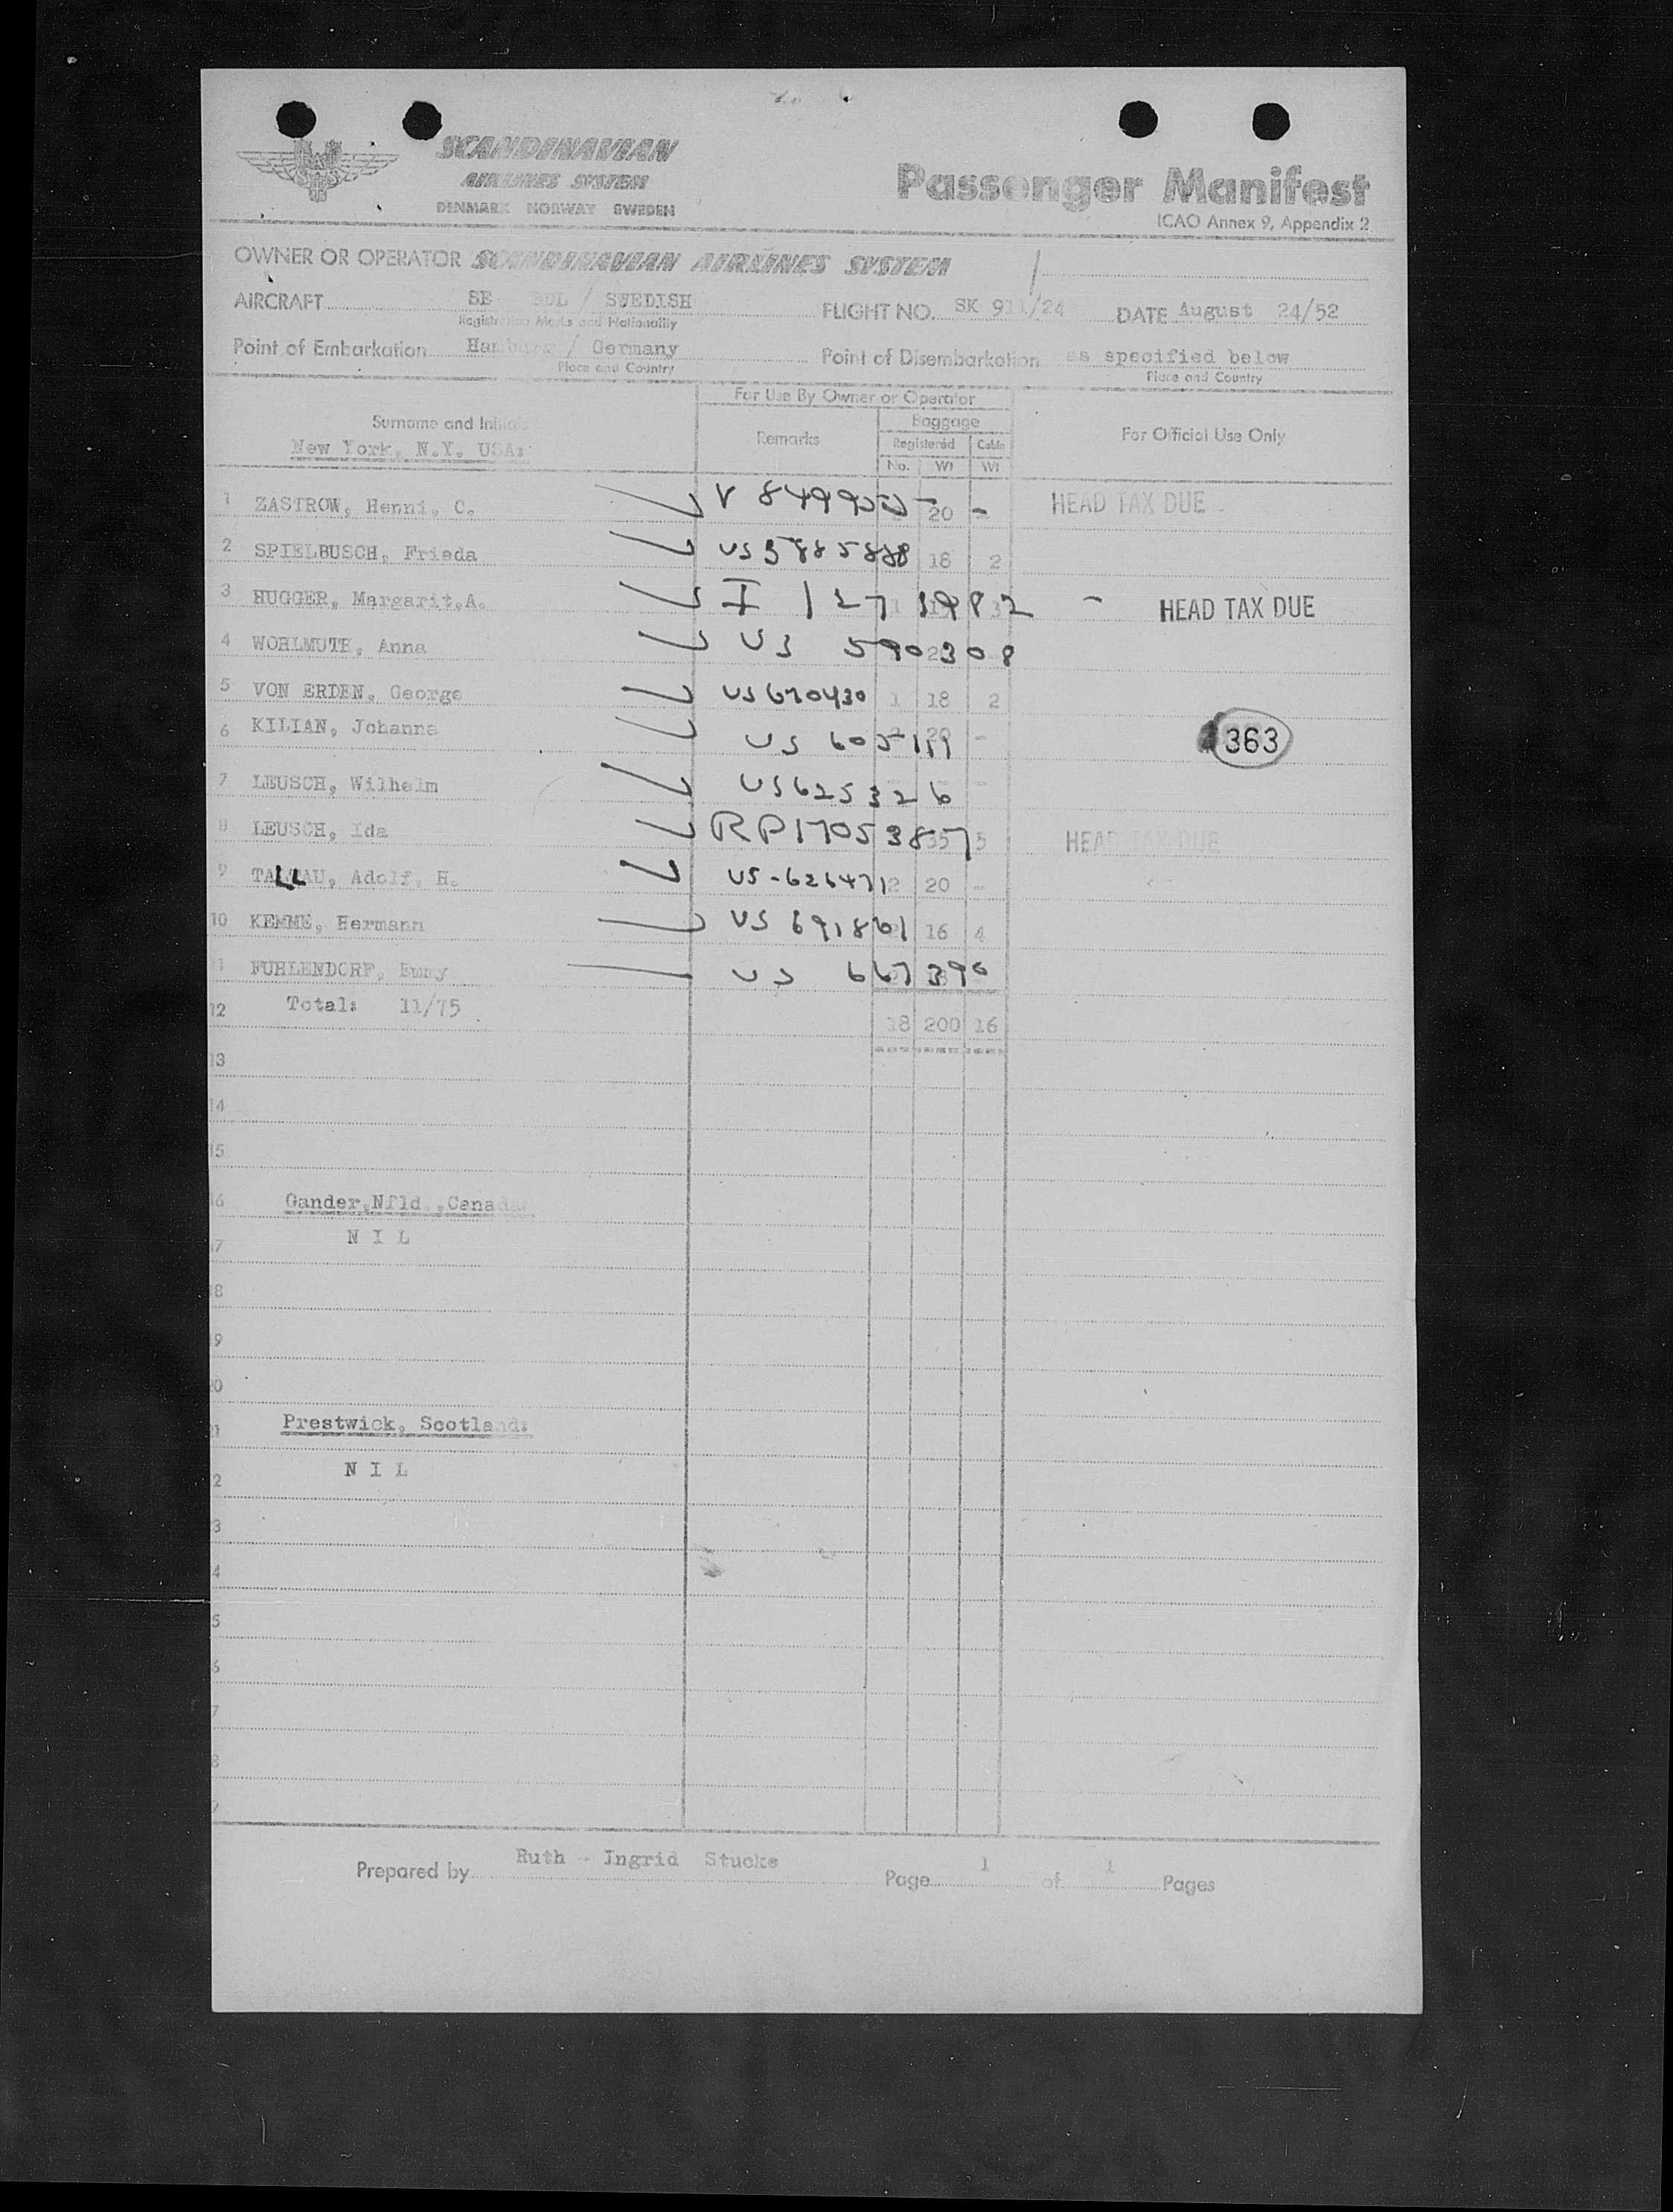 SCANDINAVIAN
AIRLINES SYSTEM
DENMARK NORWAY SWEDEN
Passenger Manifest
ICAO Annex 9, Appendix 2
OWNER OR OPERATOR SCANDINAVIAN AIRLINES SYSTEM
AIRCRAFT SE BDL / SWEDISH FLIGHT NO. SK 911/24 DATE August 24/52
Registration Marks and Nationality
Point of Embarkation Hamburg / Germany Point of Disembarkation as specified below
Place and Country Place and Country
For Use By Owner or Operator
Surname and Initials Remarks Baggage For Official Use Only
New York, N.Y. USA: Registered Cabin
No. Wt Wt
1 ZASTROW, Henni, C. V 20 - HEAD TAX DUE
2 SPIELBUSCH, Frieda 18 2
3 HUGGER, Margarit,A. I 1271982 - HEAD TAX DUE
4 WOHLMUTH, Anna US 590308
5 VON ERDEN, George US 670430 1 18 2
6 KILIAN, Johanna US 20 - 363
7 LEUSCH, Wilhelm US 625326 -
8 LEUSCH, Ida RP1705 3857 35 5 HEAD TAX DUE
9 TALLAU, Adolf, H. US-626471 2 20 -
10 KEMME, Hermann US 691861 16 4
11 FUHLENDORF, Emmy US 667390
12 Total: 11/75 18 200 16
13
14
15
16 Gander,Nfld.,Canada:
17 N I L
18
19
20
Prestwick, Scotland:
N I L
Prepared by Ruth - Ingrid Stucke Page 1 of 1 Pages